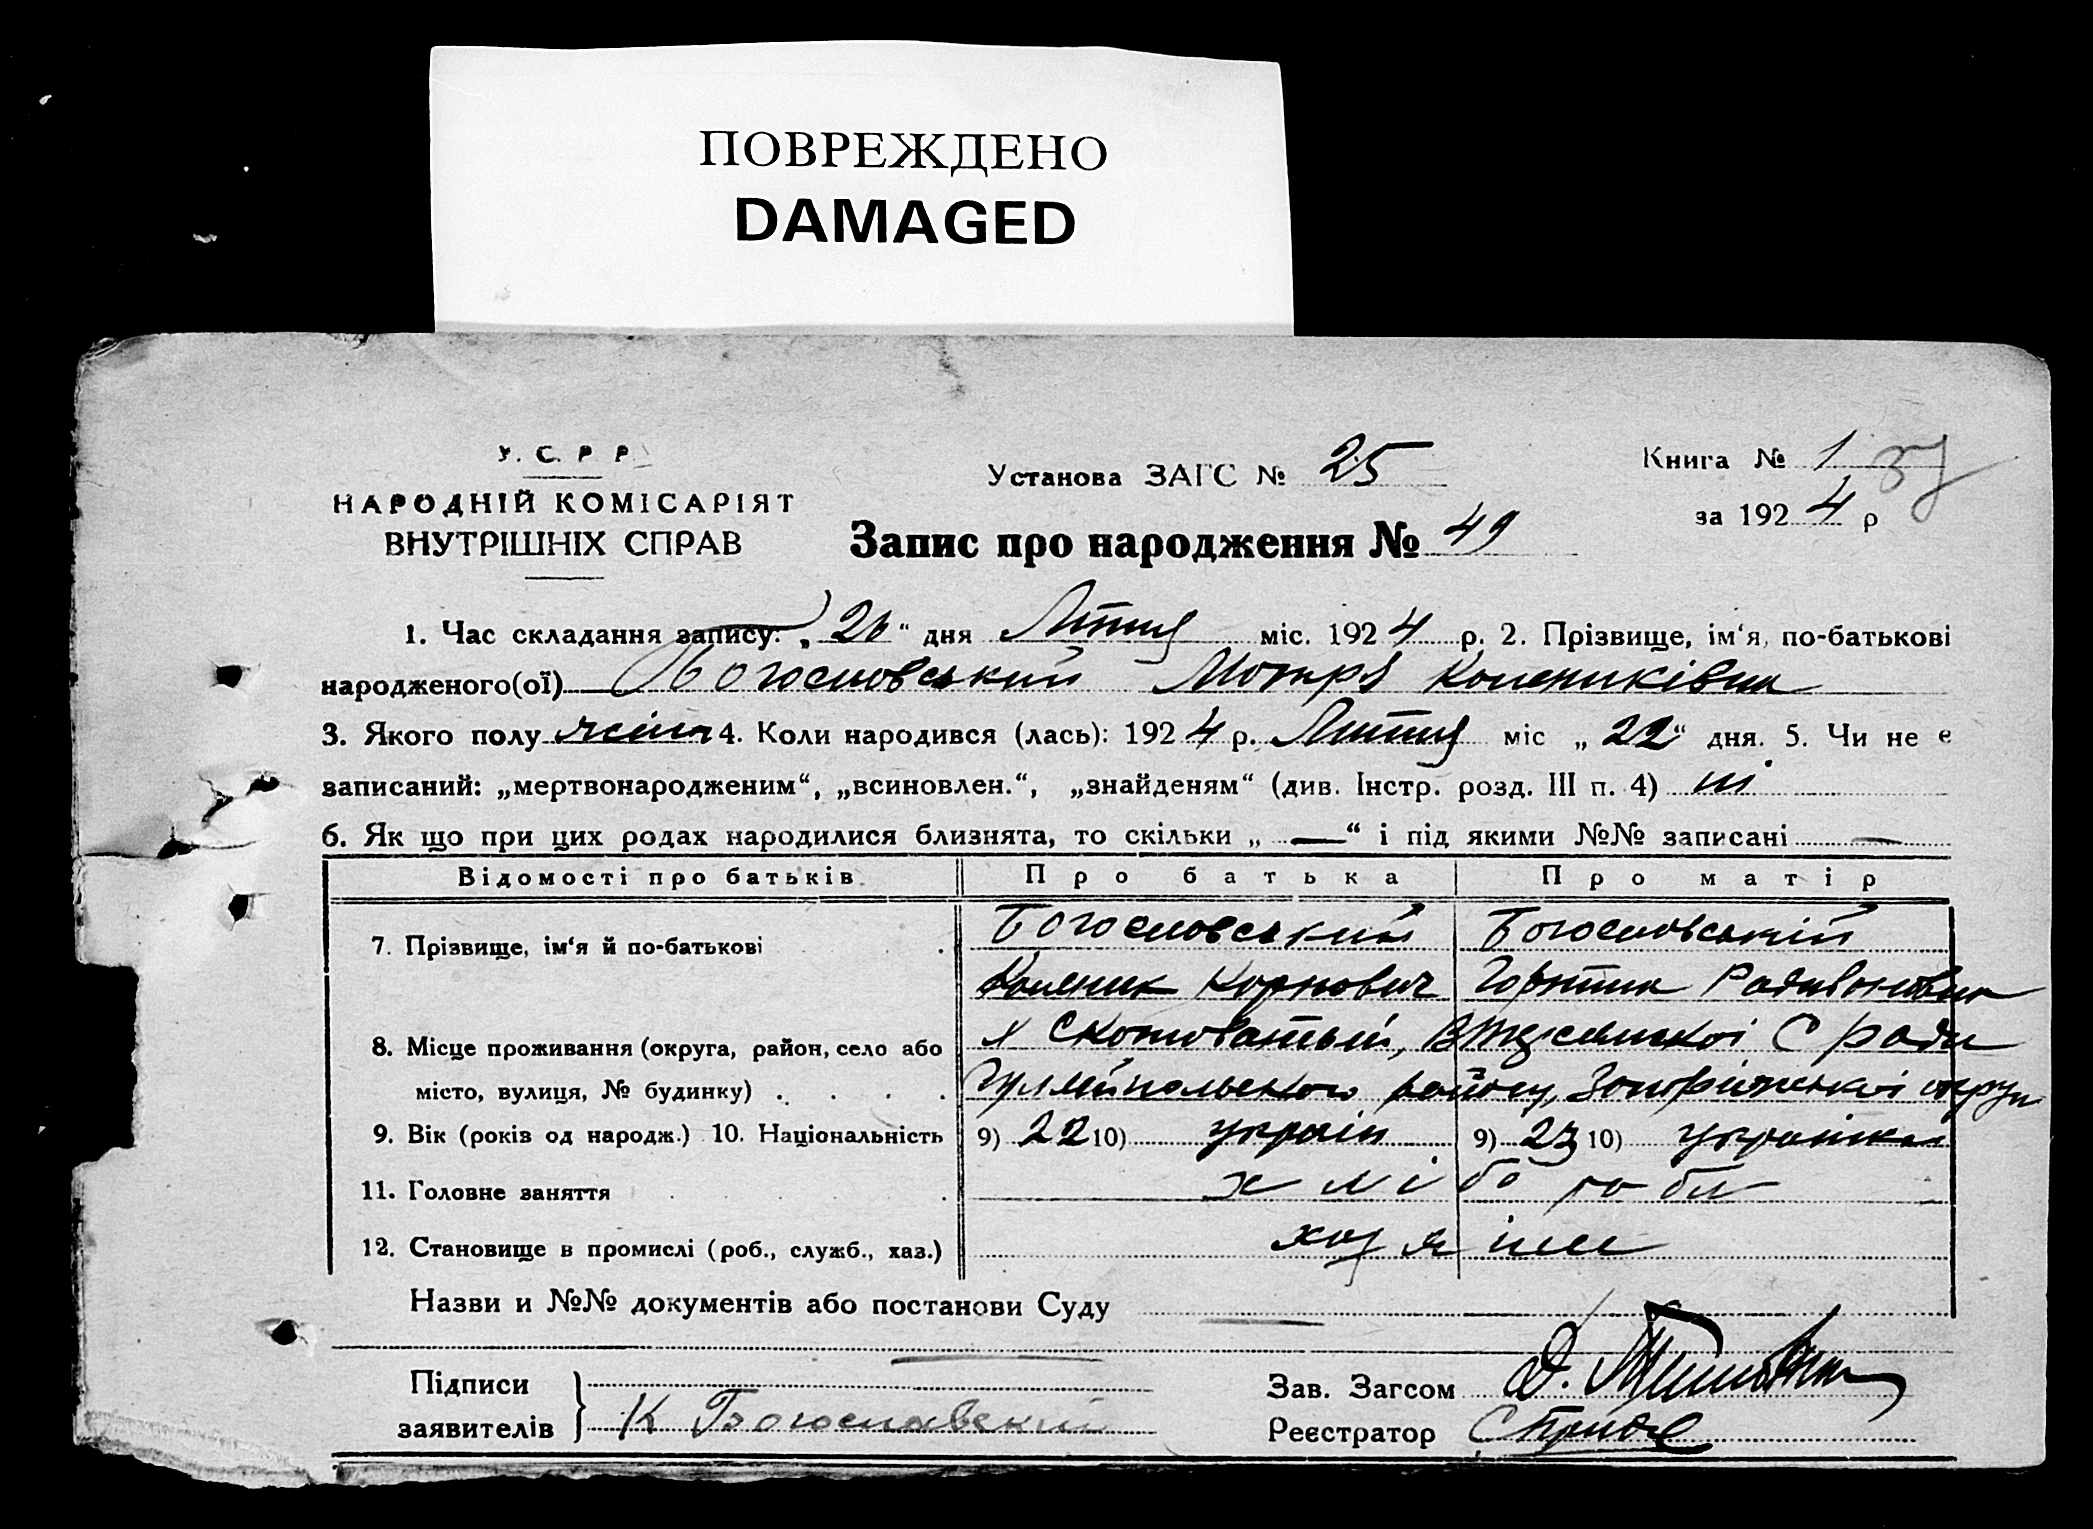 ПОВРЕЖДЕНО
DAMAGED
У. С. Р. Р.
НАРОДНІЙ КОМІСАРІЯТ
ВНУТРІШНІХ СПРАВ
Установа ЗАГС № 25
Книга № 1 37
за 1924 р
Запис про народження № 49
1. Час складання запису: „26“ дня Лютня міс. 1924 р. 2. Прізвище, ім‘я, по-батькові
народженого(ої) Богословський Мотря Конониківна
3. Якого полу жіноч 4. Коли народився (лась): 1924 р. Лютня міс „22“ дня. 5. Чи не є
записаний: „мертвонародженим“, „всиновлен.“, „знайденям“ (див. Інстр. розд. III п. 4) ні
6. Як що при цих родах народилися близнята, то скільки „ — “ і під якими №№ записані —
Відомості про батьків. Про батька Про матір
7. Прізвище, ім‘я й по-батькові Богословський Богословський
Корнович Радивоновна
8. Місце проживання (округа, район, село або х Скововатый, С ради
місто, вулиця, № будинку) Гуляйпольского району, Запоріжської округи
9. Вік (років од народж.) 10. Національність 9) 22 10) україн 9) 23 10) українка
11. Головне заняття хлібороби
12. Становище в промислі (роб., служб., хаз.) хазяіни
Назви и №№ документів або постанови Суду —
Підписи
заявителів К Богословский
Зав. Загсом Д.
Реєстратор